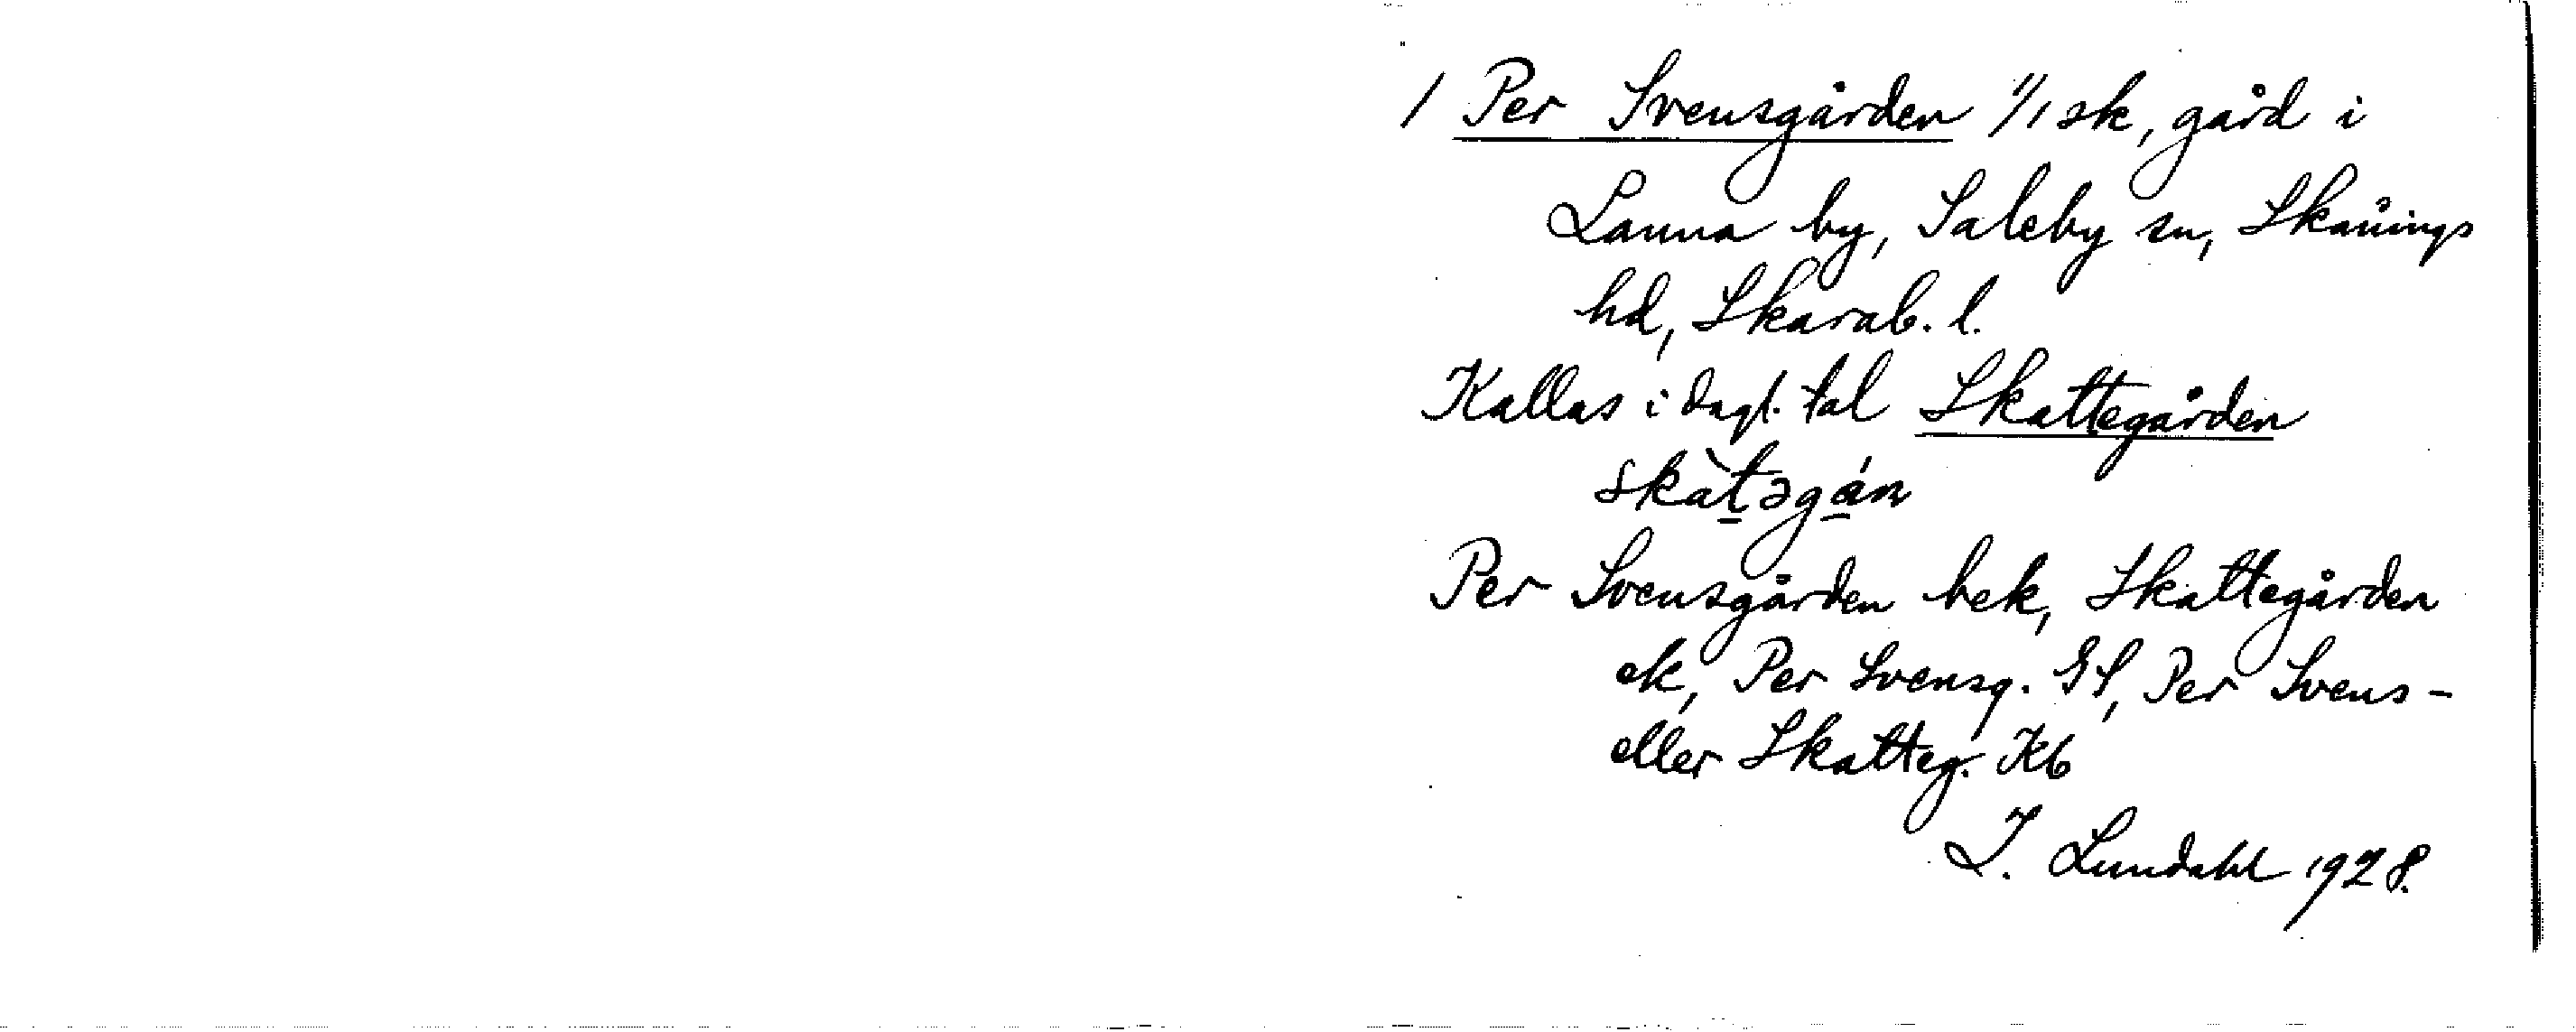 / Per Svensgården 1/1 sk, gård i
Lanna by, Saleby sn, Skånings
hd, Skarab. l.
Kallas i dagl. tal Skattegården
skàt̠əgá̠n
Per Svensgården bek, Skattegården
ek, Per Svensg. GS, Per Svens-
eller Skatteg. Kb
I. Lundahl 1928.